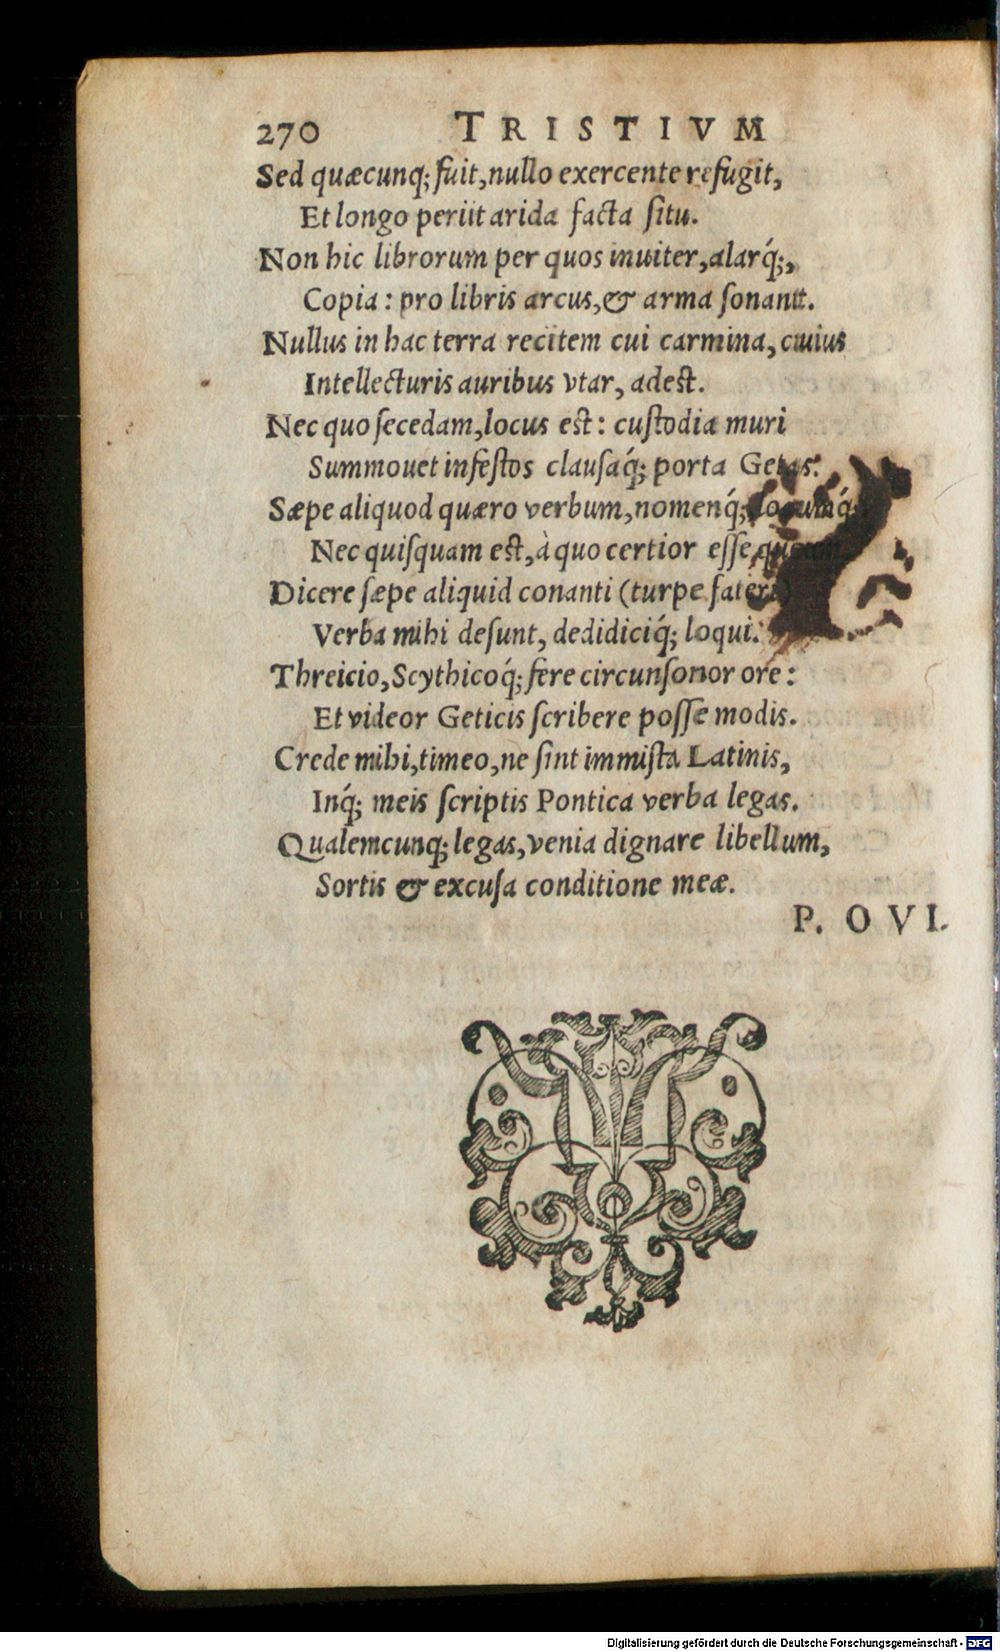 270 TRISTIVM
Sed quæcunq; fuit, nullo exercente refugit,
Et longo periit arida facta ſitu.
Non hic librorum per quos inuiter, alarq́;,
Copia: pro libris arcus, & arma ſonant.
Nullus in hac terra recitem cui carmina, cuius
Intellecturis auribus vtar, adest.
Nec quo ſecedam, locus est: cuſtodia muri
Summouet infeſtos clauſaq́; porta Getas.
Sæpe aliquod quæro verbum, nomenq́; locumq́;
Nec quiſquam est, à quo certior eſſe queam.
Dicere ſæpe aliquid conanti (turpe fateri)
Verba mihi deſunt, dedidiciq́; loqui.
Threicio, Scythicoq́; fere circunſonor ore:
Et videor Geticis ſcribere poſſe modis.
Crede mihi, timeo, ne ſint immiſta Latinis,
Inq́; meis ſcriptis Pontica verba legas.
Qualemcunq; legas, venia dignare libellum,
Sortis & excuſa conditione meæ.
P. OVI.
Digitalisierung gefördert durch die Deutsche Forschungsgemeinschaft - DFG